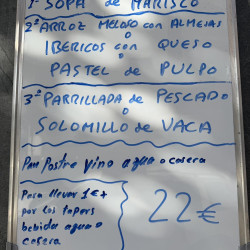 1º SOPA de MARISCO
2º ARROZ MELOSO con ALMEJAS
o
IBERICOS con QUESO
o
PASTEL de PULPO
3º PARRILLADA de PESCADO
o
SOLOMILLO de VACA
Pan Postre Vino agua o casera
Para llevar 1€ +
por los tapers
bebida agua o
casera
22€